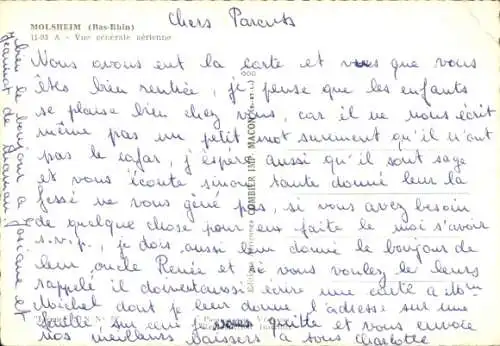 Chers Parents
MOLSHEIM (Bas-Rhin)
11-93 A - Vue générale aérienne
Nous avons eut la carte et vus que vous
êtes bien rentrée, je pense que les enfants
se plaise bien chez vous, car il ne nous écrit
même pas un petit mot surement qu'il n'ont
pas le cafar, j'espère aussi qu'il sont sage
et vous écoute sinon tante donné leur la
fessé ne vous géné pas, si vous avez besoin
de quelque chose pour eux faite le moi s'avoir
s.v.p., je dois aussi bien donné le bonjour de
leur oncle Renée et si vous voulez le leurs
rappelé il doivent aussi écrire une carte a Mr
Michel dont je leur donne l'adresse sur une
feuille, sur que je vous quitte et vous envoie
nos meilleurs baissers a tous Charlotte
bien le bonjour a
Jeannot de maman Josiane et
COMBIER IMP. MACON